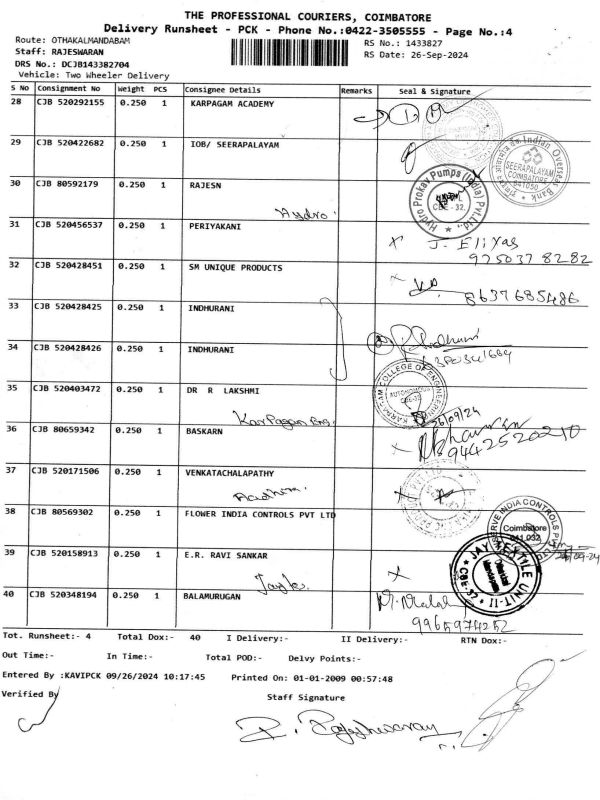 THE PROFESSIONAL COURIERS, COIMBATORE
Delivery Runsheet - PCK - Phone No.:0422-3505555 - Page No.:4
Route: OTHAKALMANDABAM
RS No.: 1433827
Staff: RAJESWARAN
RS Date: 26-Sep-2024
DRS No.: DCJB143382704
Vehicle: Two Wheeler Delivery
S No Consignment No Weight PCS Consignee Details Remarks Seal & Signature
28 CJB 520292155 0.250 1 KARPAGAM ACADEMY
29 CJB 520422682 0.250 1 IOB/ SEERAPALAYAM
Indian Overseas Bank
SEERAPALAYAM
COIMBATORE
641050
30 CJB 80592179 0.250 1 RAJESN
Hydro Prokav Pumps (India) Pvt.Ltd.
CBE-32
Hydro.
31 CJB 520456537 0.250 1 PERIYAKANI
x J. Eliyas
9750378282
32 CJB 520428451 0.250 1 SM UNIQUE PRODUCTS
x
8637685486
33 CJB 520428425 0.250 1 INDHURANI
34 CJB 520428426 0.250 1 INDHURANI
35 CJB 520403472 0.250 1 DR R LAKSHMI
KARPAGAM COLLEGE OF ENGINEERING
AUTONOMOUS
CBE-32
26/09/24
Karpagam Eng.
36 CJB 80659342 0.250 1 BASKARN
x
9442520210
37 CJB 520171506 0.250 1 VENKATACHALAPATHY
x
38 CJB 80569302 0.250 1 FLOWER INDIA CONTROLS PVT LTD
Coimbatore
641 032
39 CJB 520158913 0.250 1 E.R. RAVI SANKAR
x
JAY TEXTILE UNIT-II
CBE-32
Othakkal
Mandapam
Jaytex.
40 CJB 520348194 0.250 1 BALAMURUGAN
9965974252
Tot. Runsheet:- 4 Total Dox:- 40 I Delivery:- II Delivery:- RTN Dox:-
Out Time:- In Time:- Total POD:- Delvy Points:-
Entered By :KAVIPCK 09/26/2024 10:17:45 Printed On: 01-01-2009 00:57:48
Verified By Staff Signature